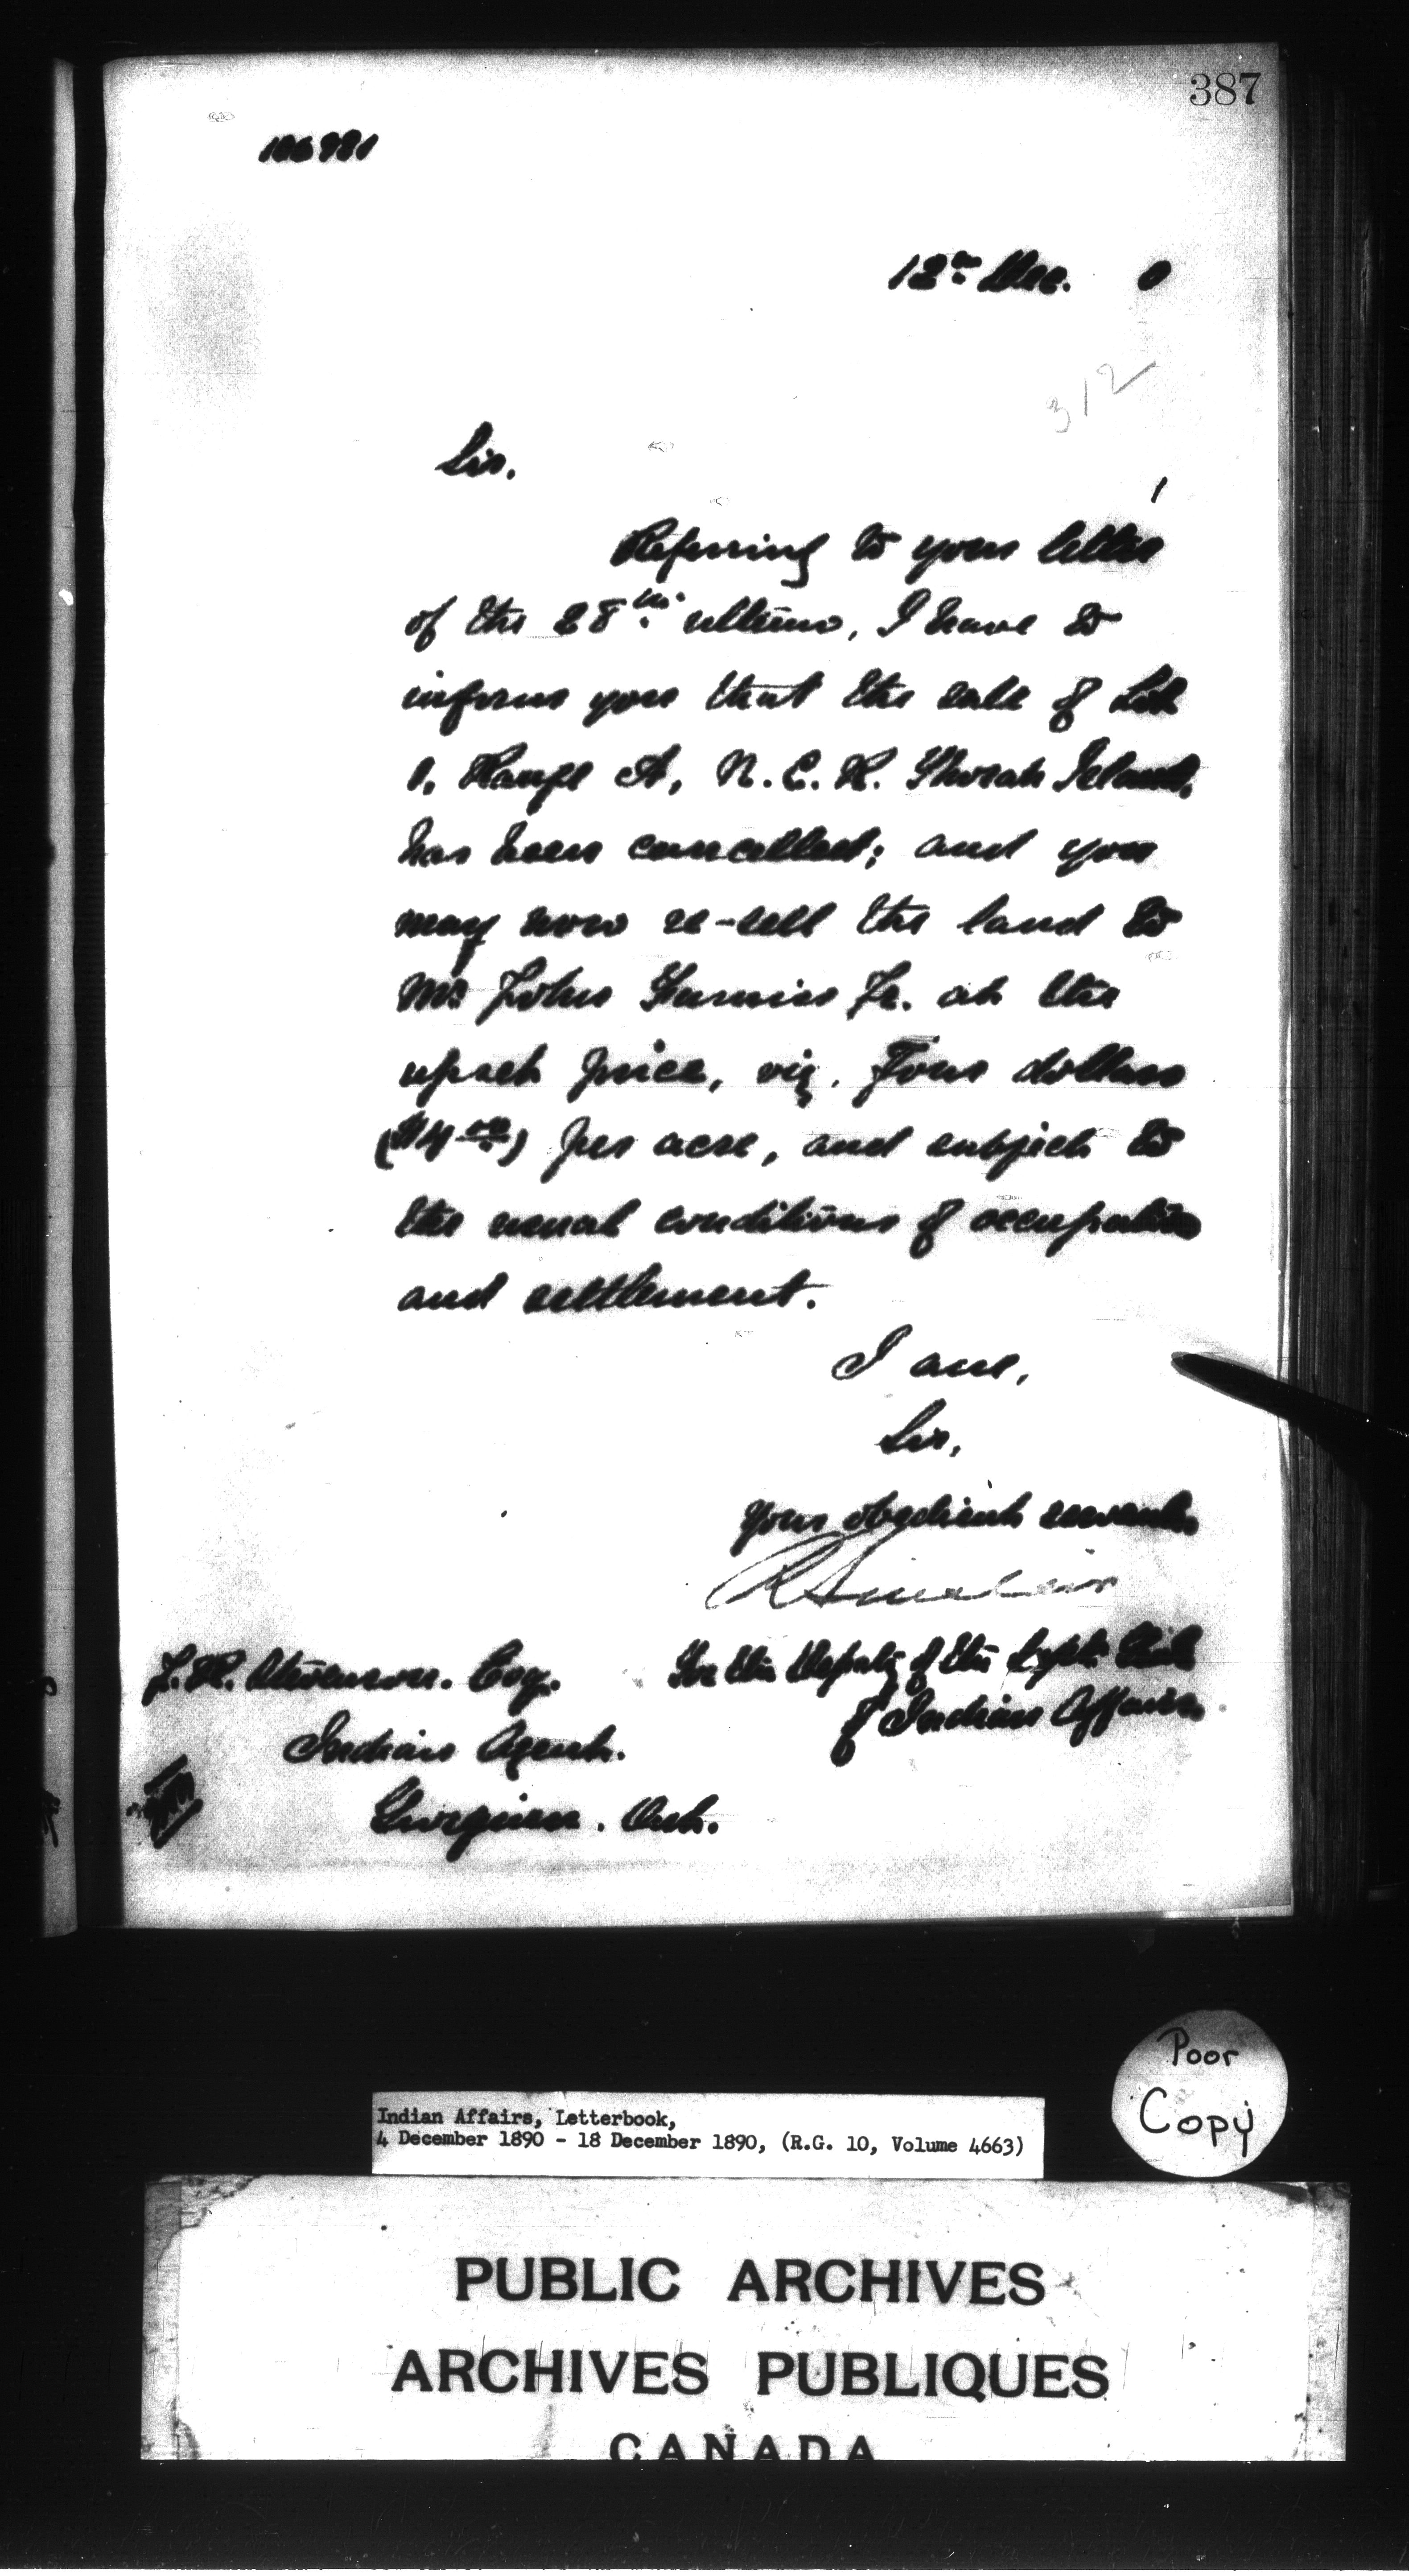 387
106981
12th Dec. 0
312
Sir,
Referring to your letter
of the 28th ultimo, I have to
inform you that the sale of Lot
1, Range A, N.E.R. Thorah Island,
has been cancelled; and you
may now re-sell the land to
Mr. John Jr. at the
upset price, viz. Four dollars
($4.00) per acre, and subject to
the usual conditions of occupation
and settlement.
I am,
Sir,
Your obedient servant,
R Sinclair
For the Deputy of the Supt. Genl
of Indian Affairs.
J.R. Stevenson. Esq.
Indian Agent.
Georgina. Ont.
Poor
Copy
Indian Affairs, Letterbook,
4 December 1890 - 18 December 1890, (R.G. 10, Volume 4663)
PUBLIC ARCHIVES
ARCHIVES PUBLIQUES
CANADA